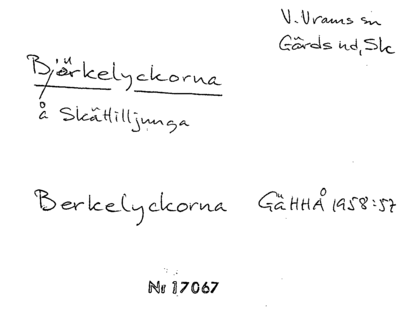 V. Vrams sn
Gärds hd, Sk
Björkelyckorna
å Skättilljunga
Berkelyckorna GäHHÅ 1958:57
Nr 17067